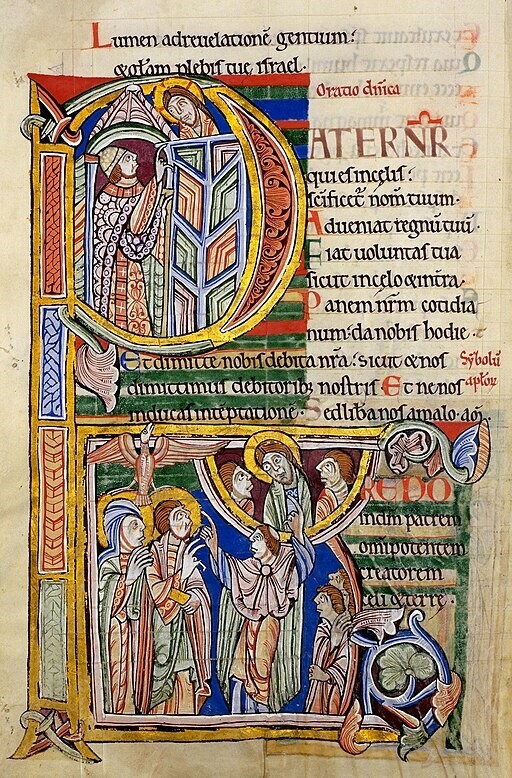 Lumen adreuelationē gentium:
& glam plebis tuę israel.
Oratio dn̄ica
PATERNR̄
qui es incęlis:
scificet᷑ nom̄ tuum.
Adueniat regnū tuū.
Fiat uoluntas tua
sicut incęlo & intra.
Panem nr̄m cotidia
num: da nobis hodie.
Et dimitte nobis debita nr̄a: sicut & nos
dimittimus debitorib; nostris Et ne nos
inducas inteptatione. Sed liba nos amalo.
Sȳbolū
aplor̄
CREDO
indm̄ patrem
omīpotentem
creatorem
celi & terre.